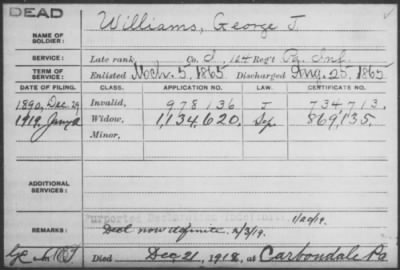 DEAD
NAME OF SOLDIER: Williams, George J.
SERVICE: Late rank, Co. I, 124 Reg't Pa. Inf.
TERM OF SERVICE: Enlisted Mch. 5, 1865 Discharged Aug. 25, 1865
DATE OF FILING. CLASS. APPLICATION NO. LAW. CERTIFICATE NO.
1890, Dec. 29 Invalid, 978136 J 734713.
1919, Jany Widow, 1,134,620. Sep. 869,135.
Minor,
ADDITIONAL SERVICES:
1/20/19.
REMARKS: Decl now definite 2/3/19.
Died Dec 21, 1918, at Carbondale Pa